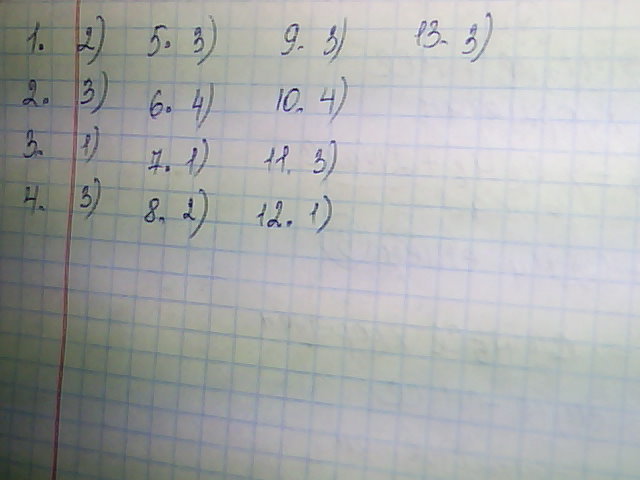 1. 2) 5. 3) 9. 3) 13. 3)
2. 3) 6. 4) 10. 4)
3. 1) 7. 1) 11. 3)
4. 3) 8. 2) 12. 1)